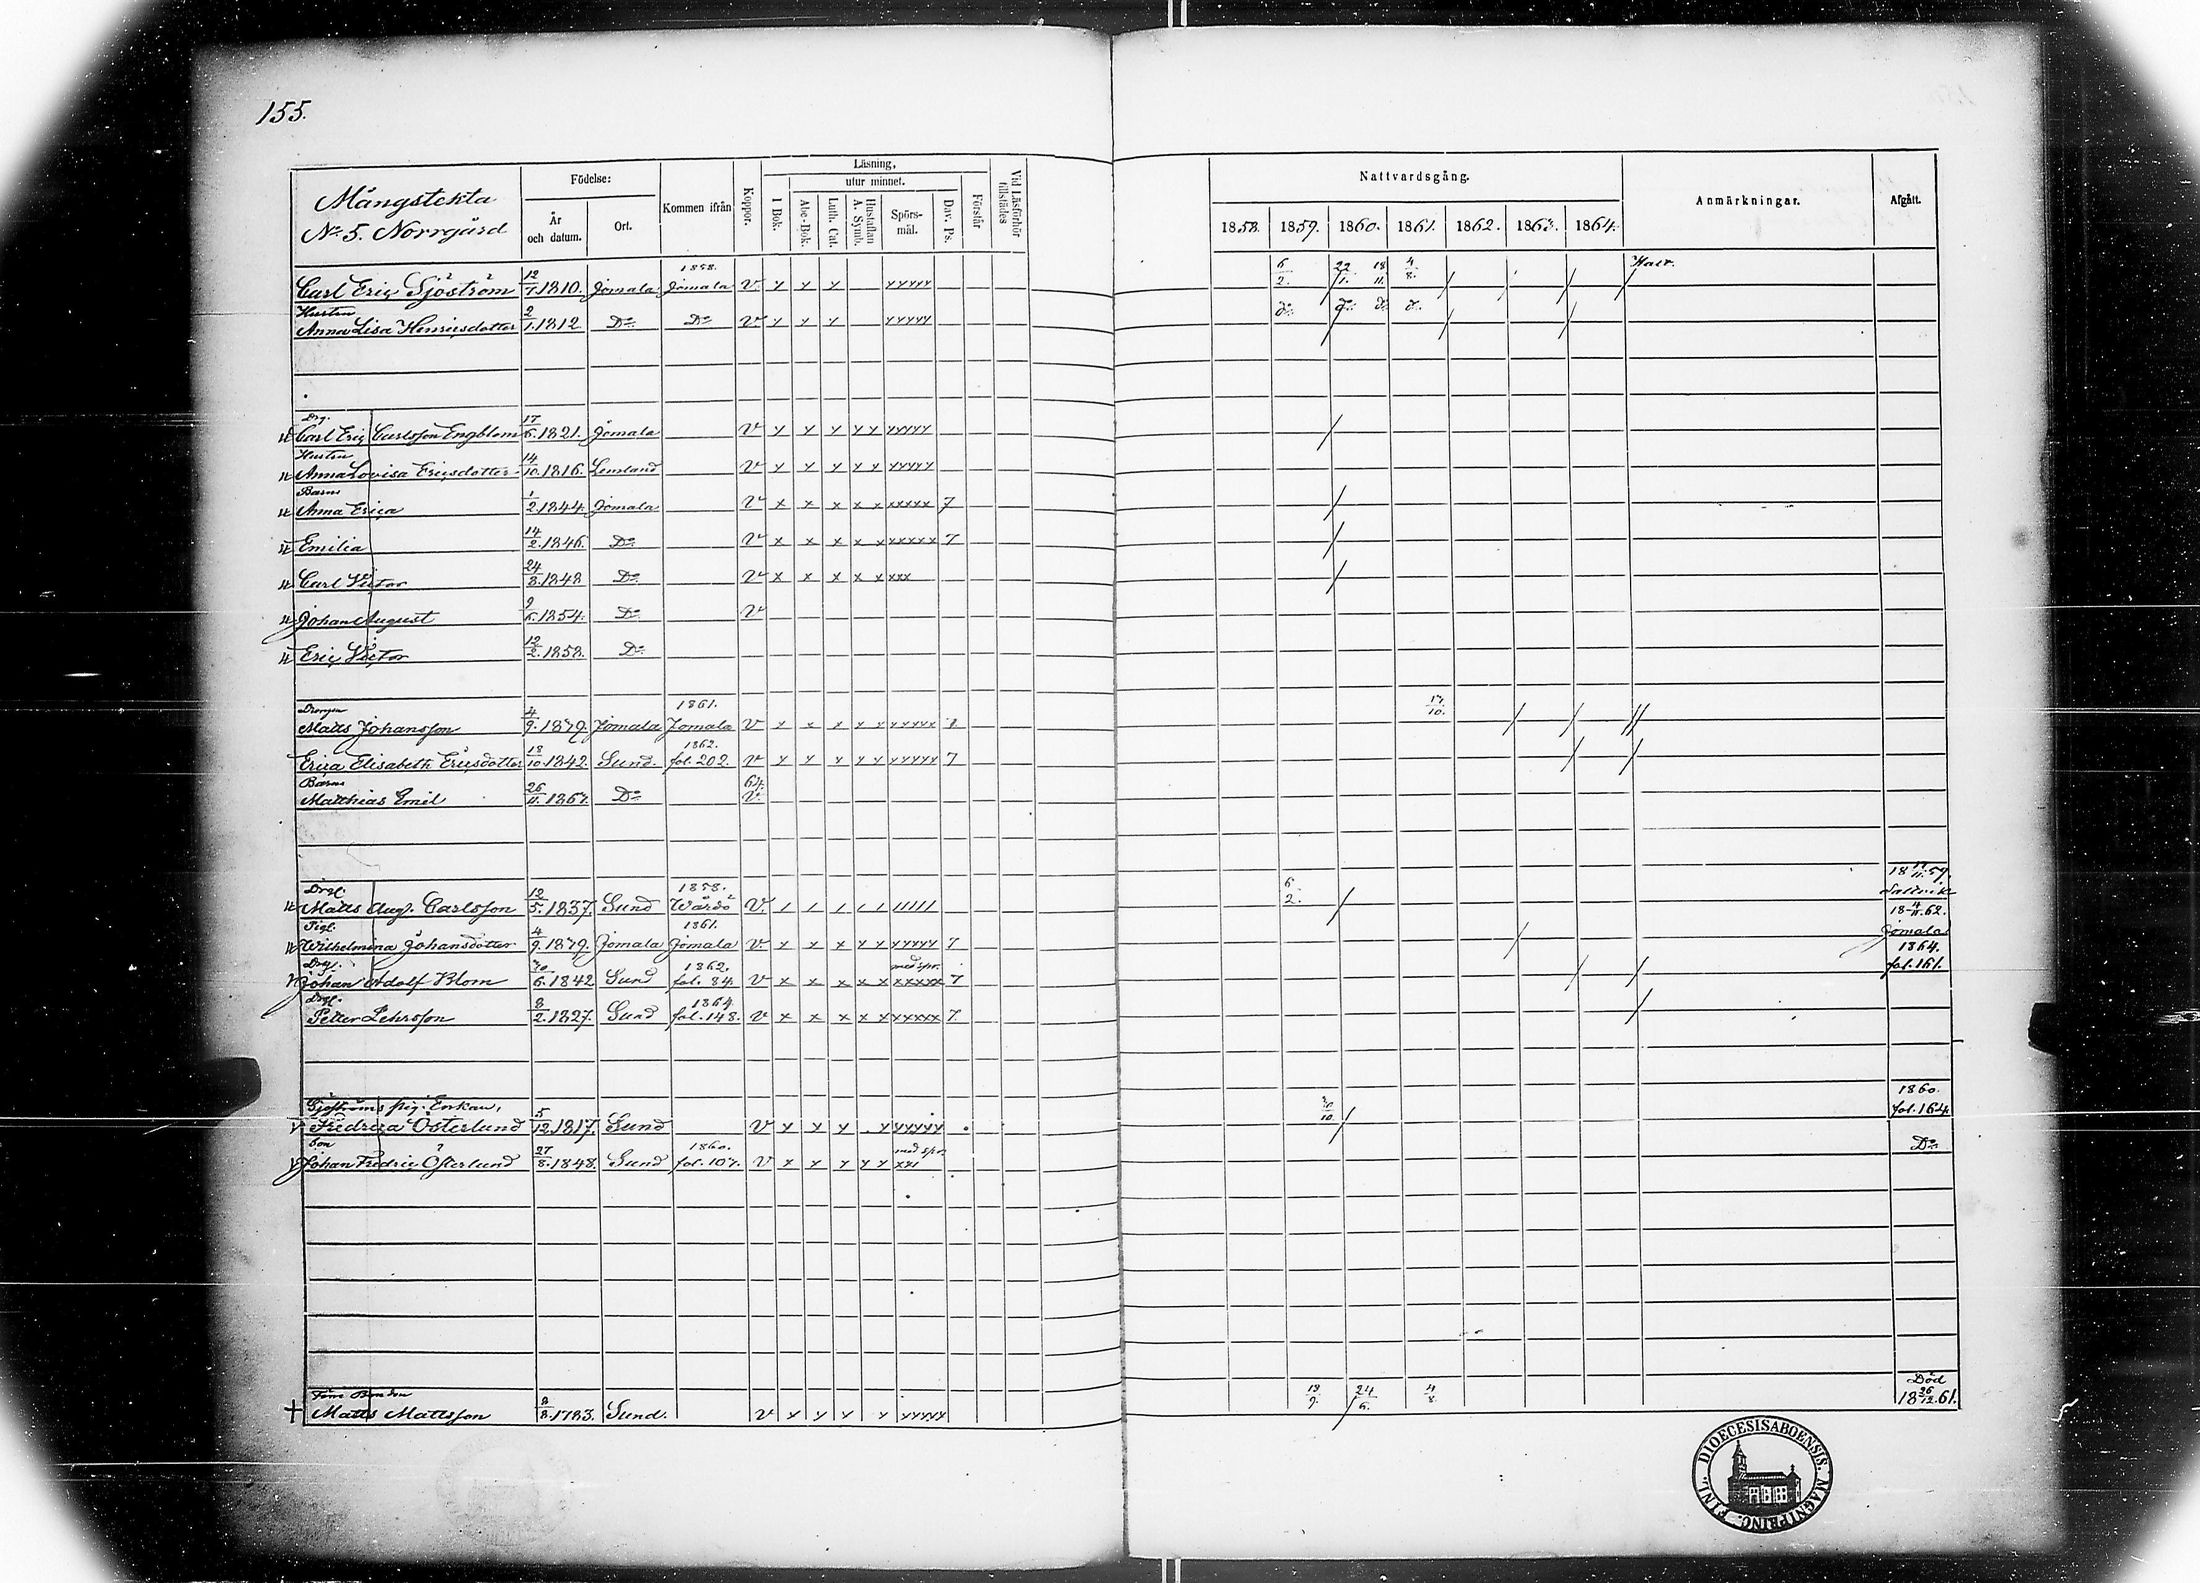 155.
Mångstekta
No 5. Norrgård
Födelse:
År och datum.
Ort.
Kommen ifrån
Koppor.
Läsning,
I Bok.
utur minnet.
Abc-Bok.
Luth. Cat.
Hustaflan A. Symb.
Spörs-mål.
Dav. Ps.
Förstår
Vid Läsförhör tillstädes
Nattvardsgång.
1858. 1859. 1860. 1861. 1862. 1863. 1864.
Anmärkningar.
Afgått.
Carl Eric Sjöström 12/7.1810. Jomala 1858. Jomala v. x x x xxxxx 6/2. 22/1. 18/11. 4/8.
Hustru
Anna Lisa Henricsdotter 2/1.1812 Do Do v x x x xxxxx do do do do
Drg.
Carl Eric Carlsson Engblom 17/6.1821. Jomala v x x x x x xxxxx
Hustru
Anna Lovisa Ericsdotter 14/10.1816. Lemland v x x x x x xxxxx
Barn
Anna Erica 1/2.1844. Jomala v x x x x x xxxxx 7
Emilia 14/2.1846. Do v x x x x x xxxxx 7
Carl Victor 24/8.1848 Do v x x x x x xxx
Johan August 9/6.1854. Do v
Eric Victor 12/2.1858. Do
Drengen
Matts Johansson 4/9.1839. Jomala 1861. Jomala v x x x x x xxxxx 17/10.
Erica Elisabeth Ericsdotter 18/10.1842. Sund. 1862. fol. 202. v x x x x x xxxxx 7
Barn
Matthias Emil 26/11.1863. Do 64. v.
Drgl.
Matts Aug. Carlsson 12/5.1837. Sund 1858. Wårdö v. / / / / / ///// 6/2. 18 17/11. 59. Saltvik
Pigl.
Wilhelmina Johansdotter 4/9.1839. Jomala 1861. Jomala v x x x x x xxxxx 7 18 4/11. 62. Jomala
Drgl.
Johan Adolf Blom 30/6.1842 Sund 1862. fol. 84. v x x x x x med spr. xxxxx 7 1864. fol. 161.
Drgl.
Petter Pehrsson 8/2.1827. Sund 1864. fol. 148. v x x x x x xxxxx 7
Sjöströms pig. Enkan,
Fredrica Österlund 5/12.1817. Sund v x x x x xxxxx 30/10. 1860. fol. 164
Son
Johan Fredric Österlund 27/8.1848. Sund 1860. fol. 107. v x x x x x med spr. xxx Do
Före Bonden
+ Matts Mattsson 8/8.1783. Sund. v x x x x xxxxx 24/6. 4/8. Död 18 26/12. 61.
DIOECESIS ABOENSIS. MAGNI PRINC. FINL.